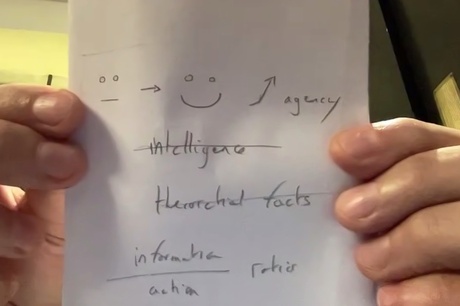 agency
intelligence
theoretical facts
information
action
ratio